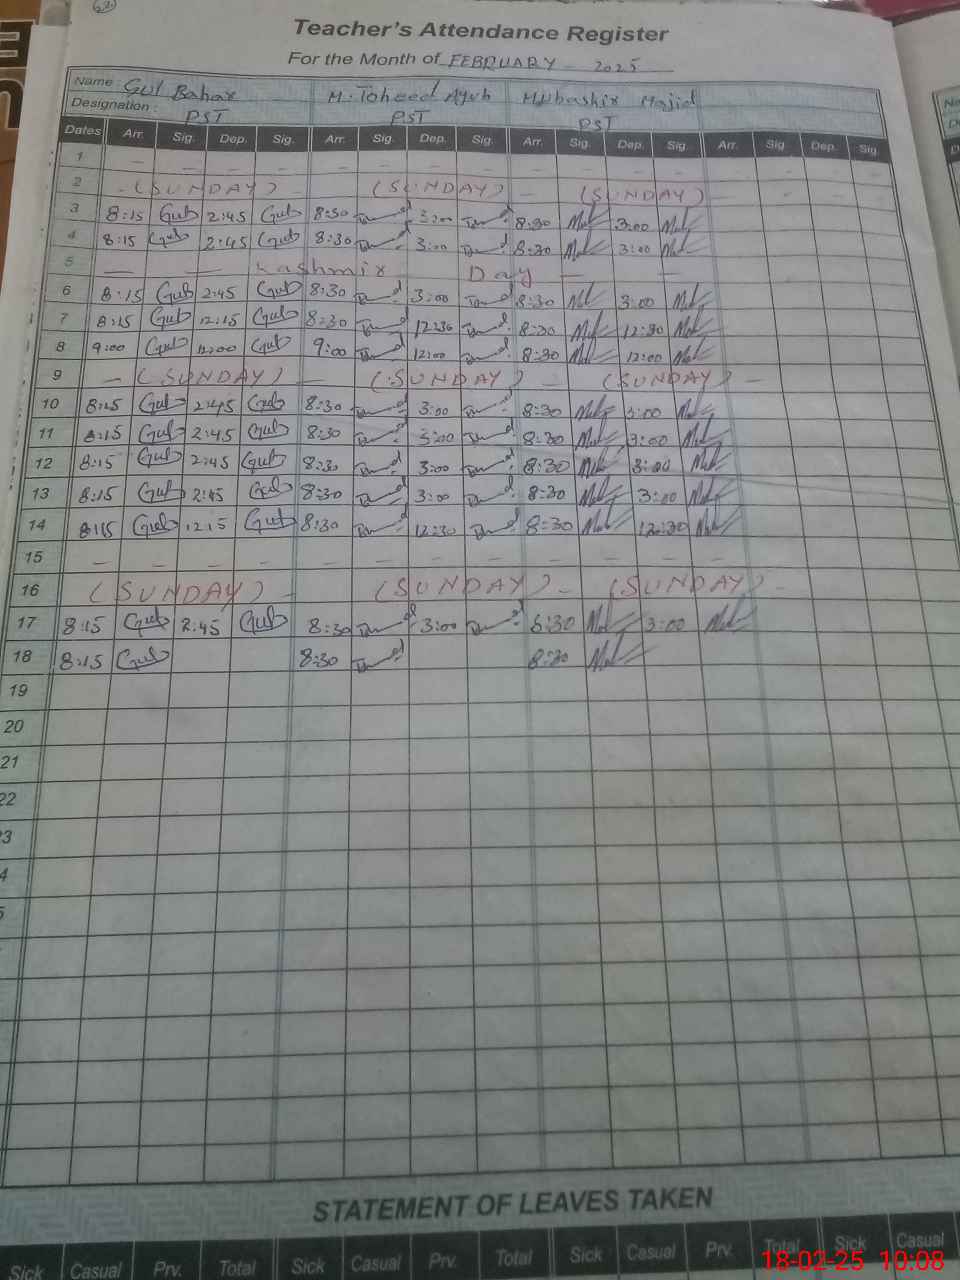 Teacher's Attendance Register
For the Month of FEBRUARY - 2025
Name : Gul Bahar M. Toheed Ayub Mubashir Majid
Designation : PST PST PST
Dates Arr. Sig. Dep. Sig. Arr. Sig. Dep. Sig. Arr. Sig. Dep. Sig. Arr. Sig. Dep. Sig.
1 – – – – – – – – – – – –
2 - (SUNDAY) - (SUNDAY) - (SUNDAY)
3 8:15 Gul 2:45 Gul 8:30 3:00 8:30 3:00
4 8:15 Gul 2:45 Gul 8:30 3:00 8:30 3:00
5 — — Kashmir Day — —
6 8:15 Gul 2:45 Gul 8:30 3:00 8:30 3:00
7 8:15 Gul 12:15 Gul 8:30 12:30 8:30 12:30
8 9:00 Gul 12:00 Gul 9:00 12:00 8:30 12:00
9 - (SUNDAY) - (SUNDAY) - (SUNDAY) -
10 8:15 Gul 2:45 Gul 8:30 3:00 8:30 3:00
11 8:15 Gul 2:45 Gul 8:30 3:00 8:30 3:00
12 8:15 Gul 2:45 Gul 8:30 3:00 8:30 3:00
13 8:15 Gul 2:45 Gul 8:30 3:00 8:30 3:00
14 8:15 Gul 12:15 Gul 8:30 12:30 8:30 12:30
15 – – – – – – – – – – – –
16 (SUNDAY) - (SUNDAY) - (SUNDAY) -
17 8:15 Gul 2:45 Gul 8:30 3:00 8:30 3:00
18 8:15 Gul 8:30 8:30
19
20
21
22
3
4
5
STATEMENT OF LEAVES TAKEN
Sick Casual Prv. Total Sick Casual Prv. Total Sick Casual Prv. Total Sick Casual
18-02-25 10:08